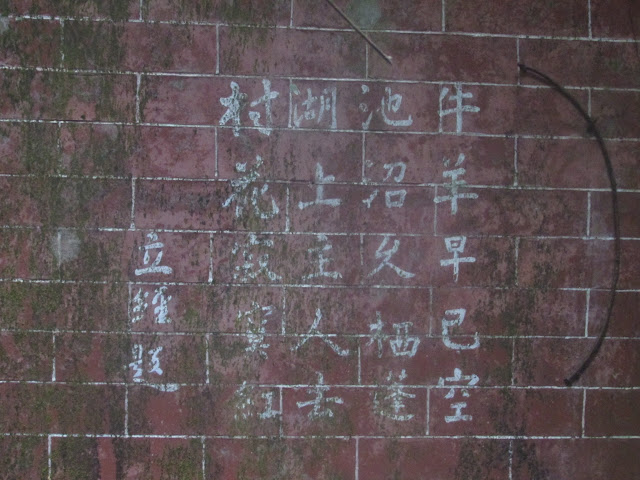 牛羊早已空
池沼久栖蓬
湖上主人去
村花寂寞紅
立鍾題